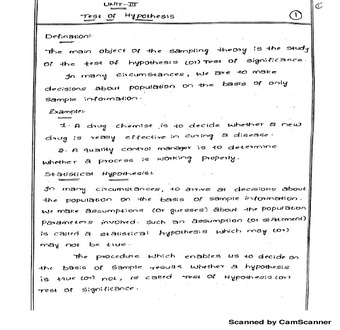 UNIT-III
Test of Hypothesis
1
Definition:
The main object of the sampling theory is the study
of the test of hypothesis (or) Test of significance.
In many circumstances, we are to make
decisions about population on the basis of only
sample information.
Example:
1. A drug chemist is to decide whether a new
drug is really effective in curing a disease.
2. A quality control manager is to determine
whether a process is working properly.
Statistical Hypothesis:
In many circumstances, to arrive at decisions about
the population on the basis of sample information.
We make assumptions (or guesses) about the population
Parameters involved. Such an assumption (or statement)
is called a statistical hypothesis which may (or)
may not be true.
The procedure which enables us to decide on
the basis of sample results whether a hypothesis
is true (or) not, is called Test of Hypothesis (or)
Test of Significance.
Scanned by CamScanner